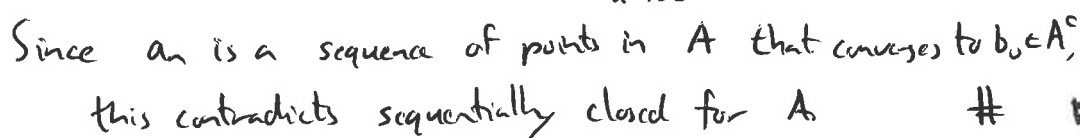 Since aₙ is a sequence of points in A that converges to b₀∈Aᶜ,
this contradicts sequentially closed for A #